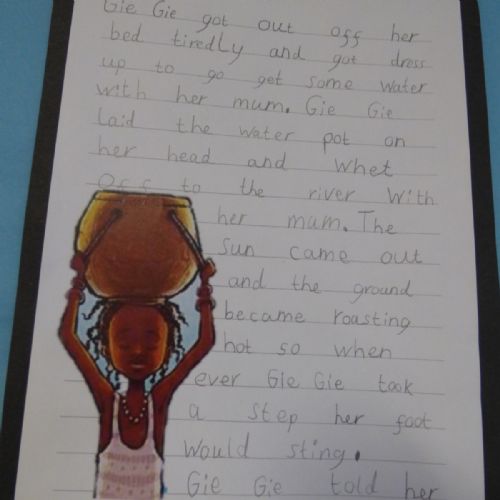 Gie Gie got out off her
bed tiredly and got dress
up to go get some water
with her mum. Gie Gie
Laid the water pot on
her head and whet
off to the river with
her mum. The
Sun came out
and the ground
became roasting
hot so when
ever Gie Gie took
a step her foot
would sting.
Gie Gie told her